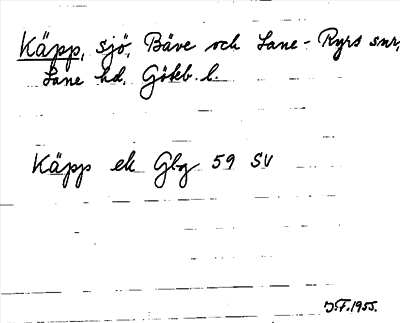 Käpp, sjö, Bäve och Lane-Ryrs snr,
Lane hd, Göteb. l.
Käpp ek Gbg 59 SV
J.F. 1955.